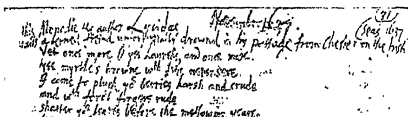 Lycidas Novemb: 1637
this Monodie the author
bewails a lerned freind unfortunatly drownd in his passage from Chester on the Irish
Seas 1637
Yet once more O ye laurels, and once more
yee myrtle's browne wth Ivie never sere
I come to pluck yor berries harsh and crude
and wth forc't fingers rude
shatter yor leaves before the mellowing yeare